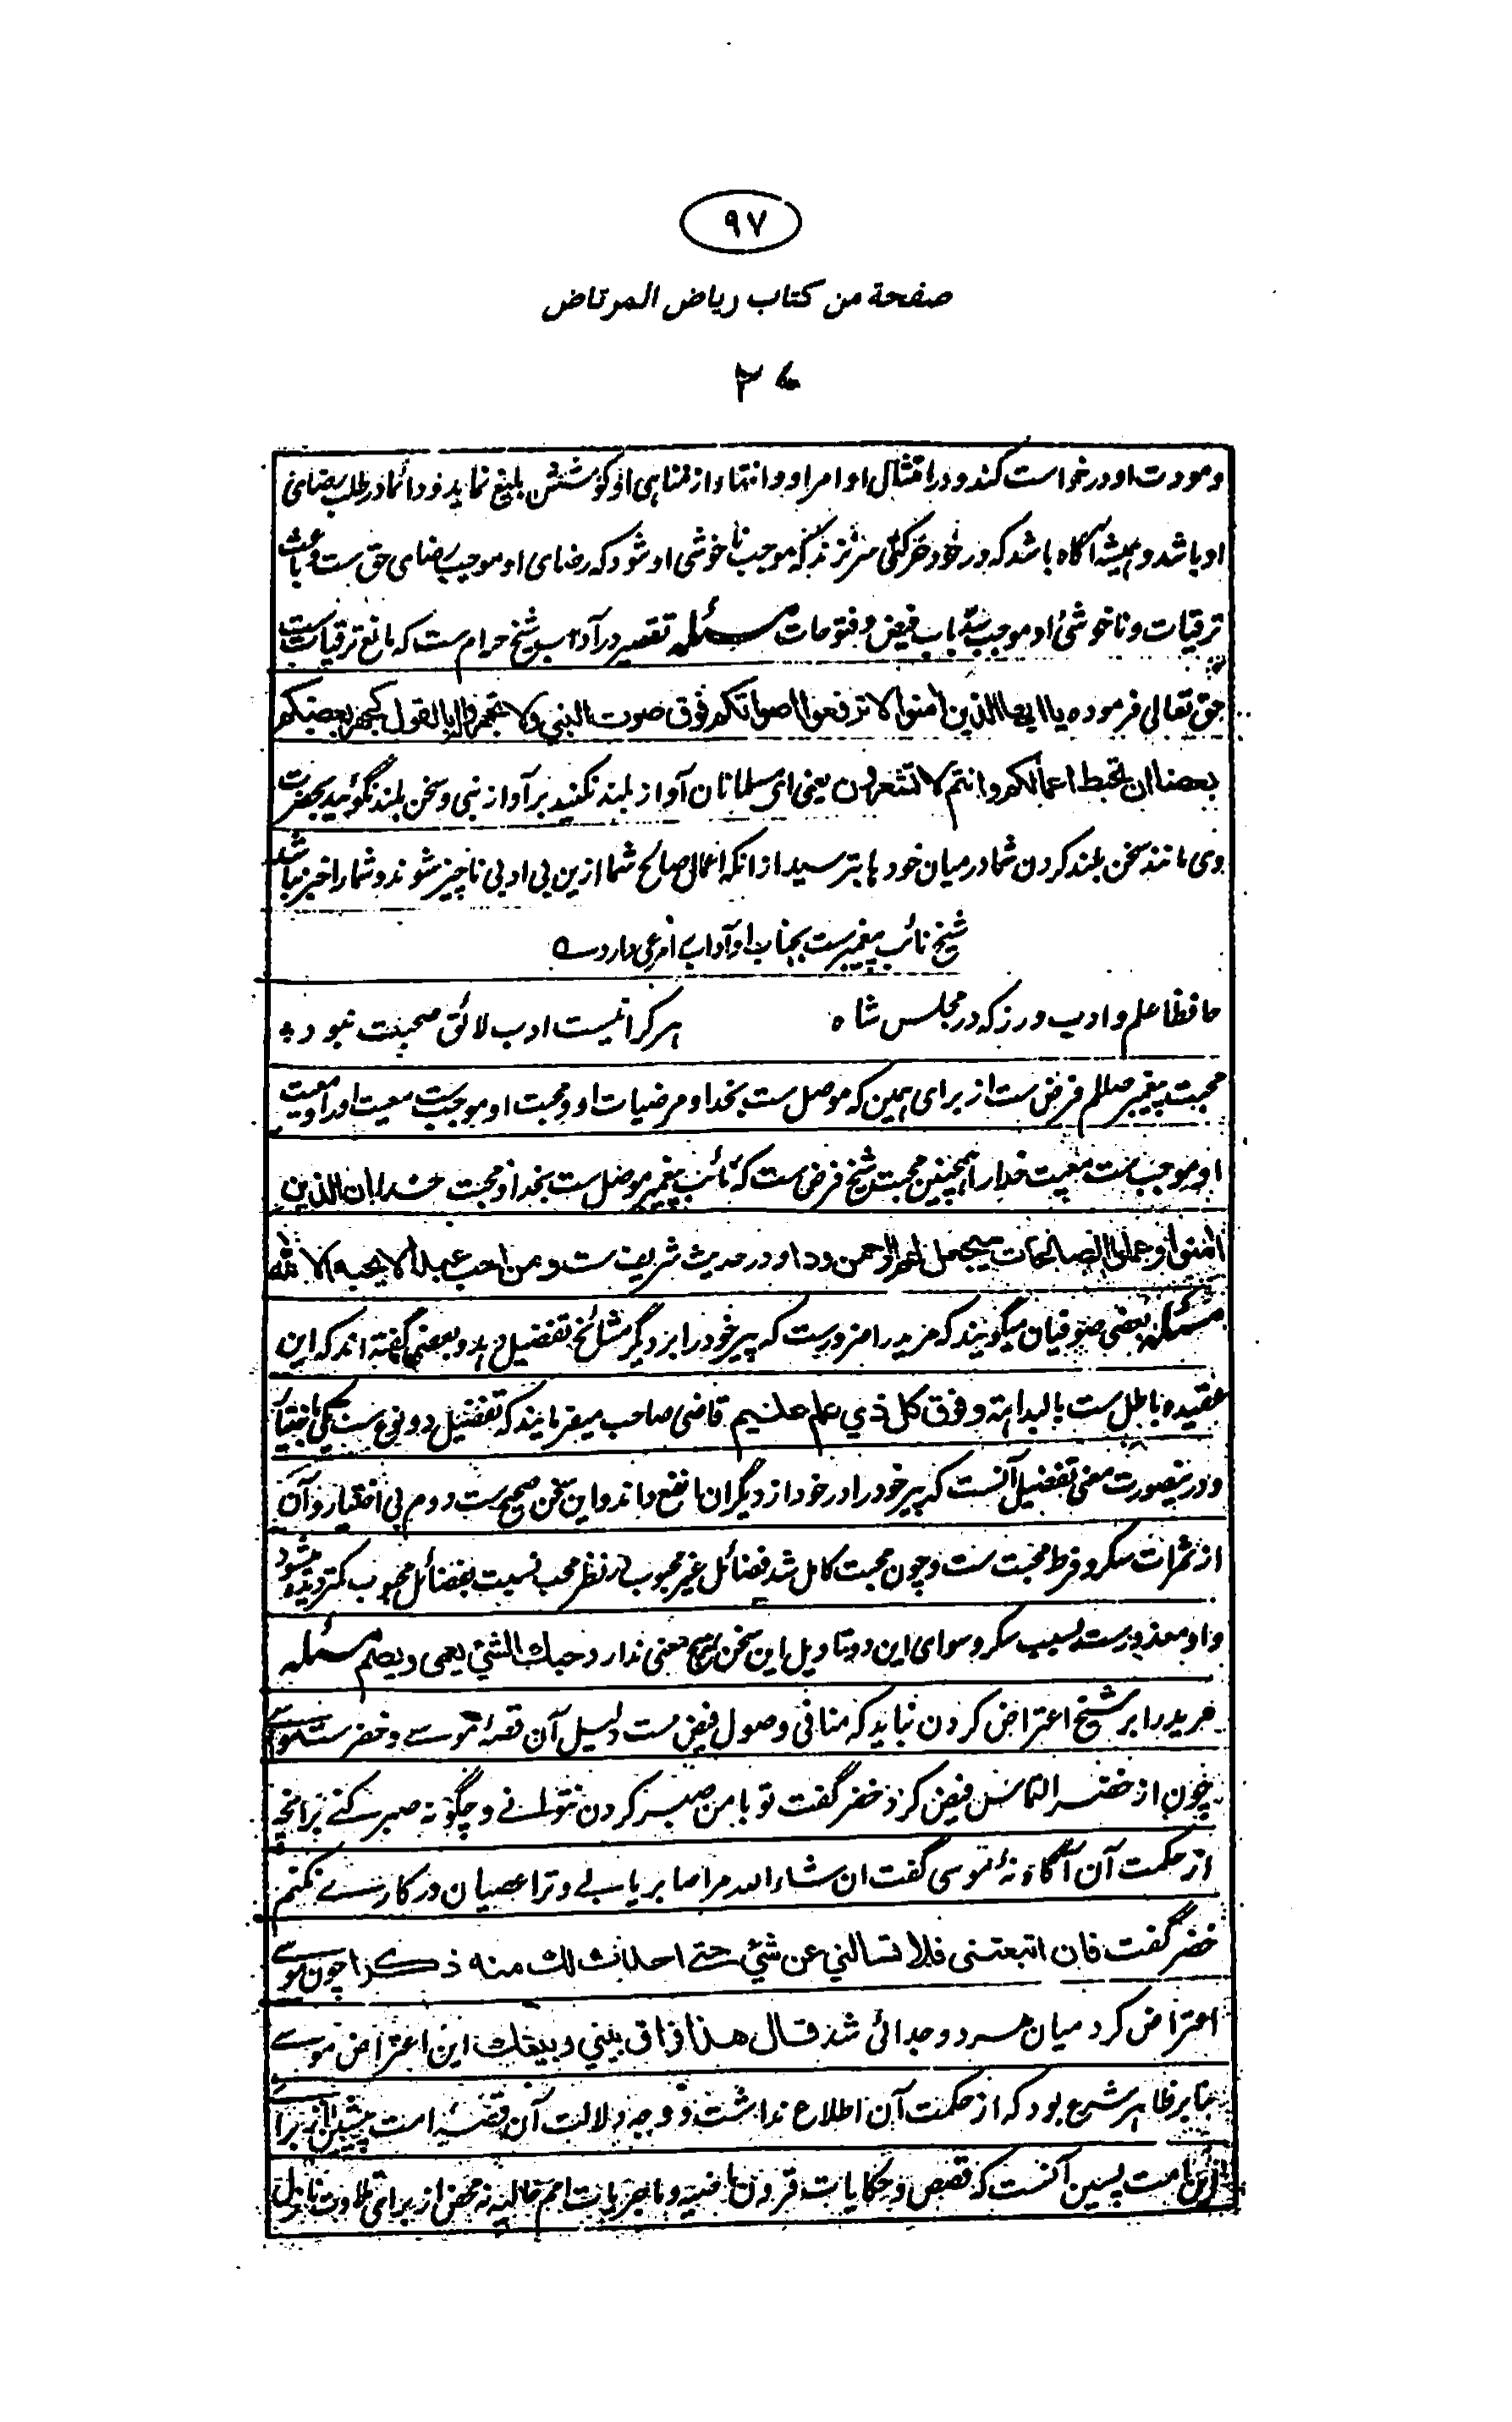 ٩٧
صفحة من كتاب رياض المرتاض
٢٤
و مودت او درخواست کند و در امتثال اوامر او و انتهاء از مناهی او کوشش بلیغ نماید و دائما در طلب رضای
او باشد و همیشه آگاه باشد که در خود حرکتی سر نزند که موجب ناخوشی او شود که رضای او موجب رضای حق ست و باعث
ترقیات و ناخوشی او موجب سد باب فیض و فتوحات مسئله تقصیر در آداب شیخ حرام ست که مانع ترقیات ست
حق تعالی فرموده یا ایها الذین امنوا لا ترفعوا اصواتکم فوق صوت النبی ولا تجهروا له بالقول کجهر بعضکم
بعضا ان تحبط اعمالکم و انتم لا تشعرون یعنی ای مسلمانان آواز بلند نکنید بر آواز نبی و سخن بلند نگوئید بحضرت
وی مانند سخن بلند کردن شما در میان خود ها بترسید از انکه اعمال صالح شما ازین بی ادبی ناچیز شوند و شما را خبر نباشد
شیخ نائب پیغمبرست بجناب او آداب او مرعی دارد ے
حافظا علم و ادب ورز که در مجلس شاه هر کرا نیست ادب لائق صحبت نبود
محبت پیغمبر صللم فرض ست از برای همین که موصل ست بخدا و مرضیات او و محبت او موجب ست معیت او را و معیت
او موجب ست معیت خدا را همچنین محبت شیخ فرض ست که نائب پیغمبر موصل ست بخدا و محبت خدا ان الذین
امنوا و عملوا الصالحات سیجعل لهم الرحمن ودا و در حدیث شریف ست و من احب عبدا لا یحبه الا لله
مسئله بعضی صوفیان میگویند که مرید را ضرورست که پیر خود را بر دیگر مشائخ تفضیل دهد و بعضی گفته اند که این
عقیده باطل ست بالبداهة و فوق کل ذی علم علیم قاضی صاحب میفرمایند که تفضیل دو نوع ست یکی باختیار
و درینصورت معنی تفضیل آنست که پیر خود را در خود از دیگران انفع داند و این سخن صحیح ست دوم بی اختیار و آن
از ثمرات سکر و فرط محبت ست و چون محبت کامل شد فضائل غیر محبوب در نظر محب نسبت بفضائل محبوب کمتر دیده میشود
و او معذورست بسبب سکر و سوای این دو تاویل این سخن هیچ معنی ندارد حبک الشئ یعمی و یصم مسئله
مرید را بر شیخ اعتراض کردن نباید که منافی وصول فیض ست دلیل آن قصۂ موسے و خضر ست موسے
چون از خضر التماس فیض کرد خضر گفت تو با من صبر کردن نتوانے و چگونه صبر کنے بر انچه
از حکمت آن آگاه نۂ موسی گفت ان شاء الله مرا صابر یابے و ترا عصیان در کارے نکنم
خضر گفت فان اتبعتنی فلا تسالنی عن شئ حتے احدث لك منه ذکرا چون موسے
اعتراض کرد میان هر دو جدائی شد قال هذا فراق بینی و بینك این اعتراض موسے
بنا بر ظاهر شرع بود که از حکمت آن اطلاع نداشت و وجه دلالت آن قصۂ امت پیشین از برای
این امت پسین آنست که قصص و حکایات قرون ماضیه و ماجریات امم خالیه نه محض از برای تلاوت نازل